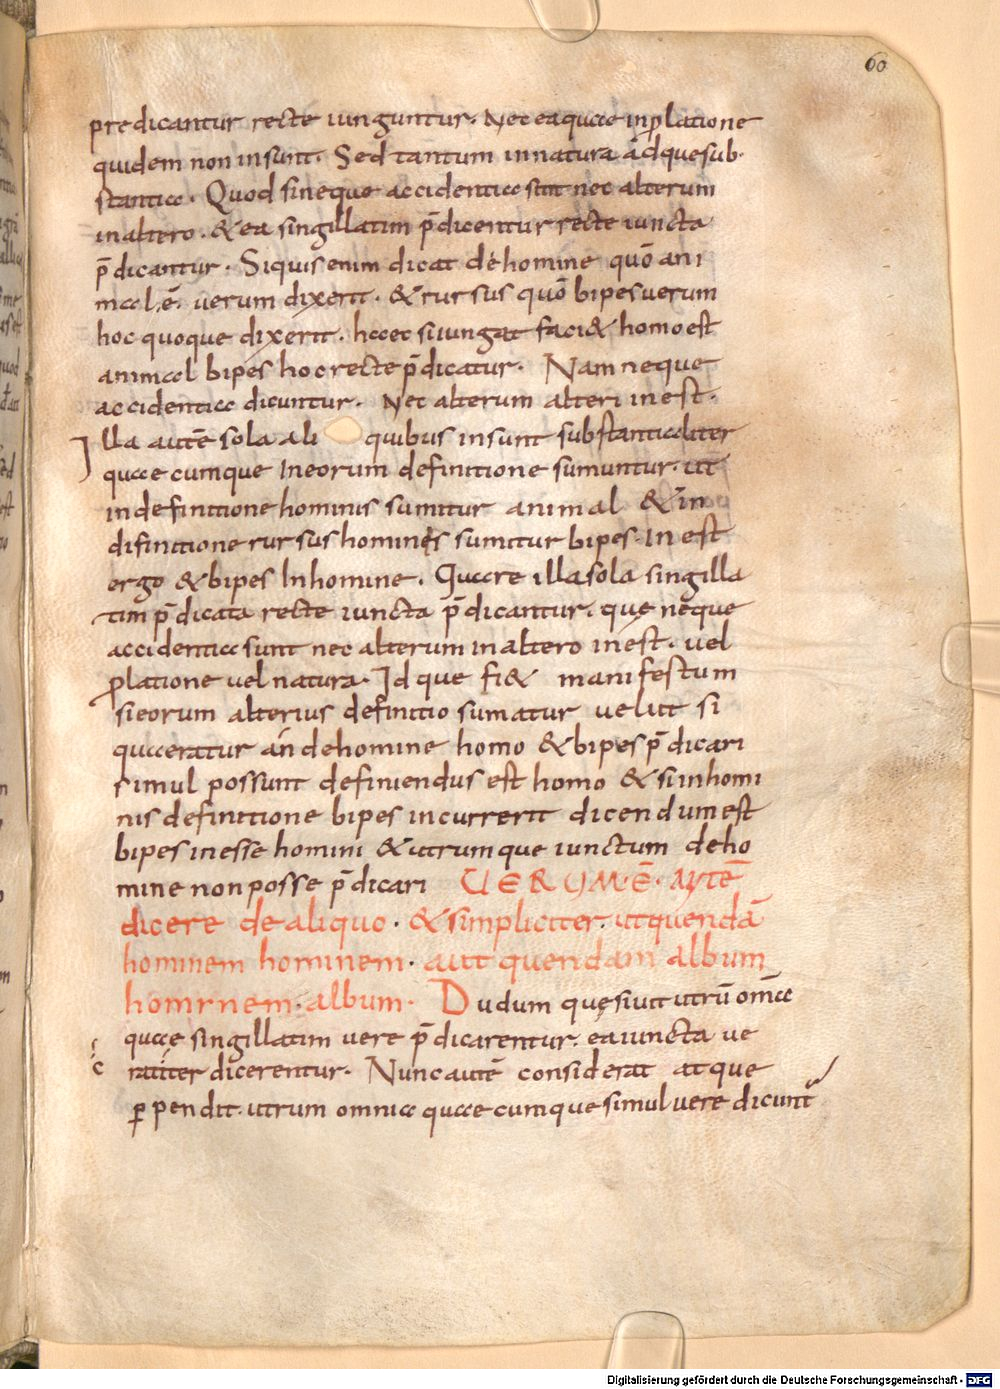 60
predicantur recte iunguntur. Nec ea quae in platione
quidem non insunt. Sed tantum in natura adque sub
stantia. Quod si neque accidentia sint nec alterum
in altero. & ea singillatim p̄dicentur recte iuncta
p̄dicantur. Si quis enim dicat de homine quō ani
mal.ē. verum dixerit. & rursus quō bipes verum
hoc quoque dixerit. haec si iungat faci& homo est
animal bipes hoc recte p̄dicatur. Nam neque
accidentia dicuntur. Nec alterum alteri inest.
Illa autē sola ali quibus insunt substantialiter
quaecumque In eorum definitione sumuntur. ut
in definitione hominis sumitur animal & in
difinitione rursus hominis sumitur bipes. In est
ergo & bipes In homine. Quare illa sola singilla
tim p̄dicata recte iuncta p̄dicantur. quę neque
accidentia sunt nec alterum in altero inest. vel
platione vel natura. Id que fi& manifestum
si eorum alterius definitio sumatur velut si
quaeratur an de homine homo & bipes p̄dicari
simul possunt definiendus est homo & si in homi
nis definitione bipes incurrerit dicendum est
bipes inesse homini & utrum que iunctum de ho
mine non posse p̄dicari UERUM.Ē. AUTĒ
dicere de aliquo. & simpliciter. ut quendā
hominem hominem. aut quendam album
hominem. album. Dudum quęsiuit utrū om̄a
quae singillatim vere p̄dicarentur. ea iuncta ve
raciter dicerentur. Nunc autē considerat atque
perpendit. utrum omnia quaecumque simul vere dicunt̄
Digitalisierung gefördert durch die Deutsche Forschungsgemeinschaft - DFG